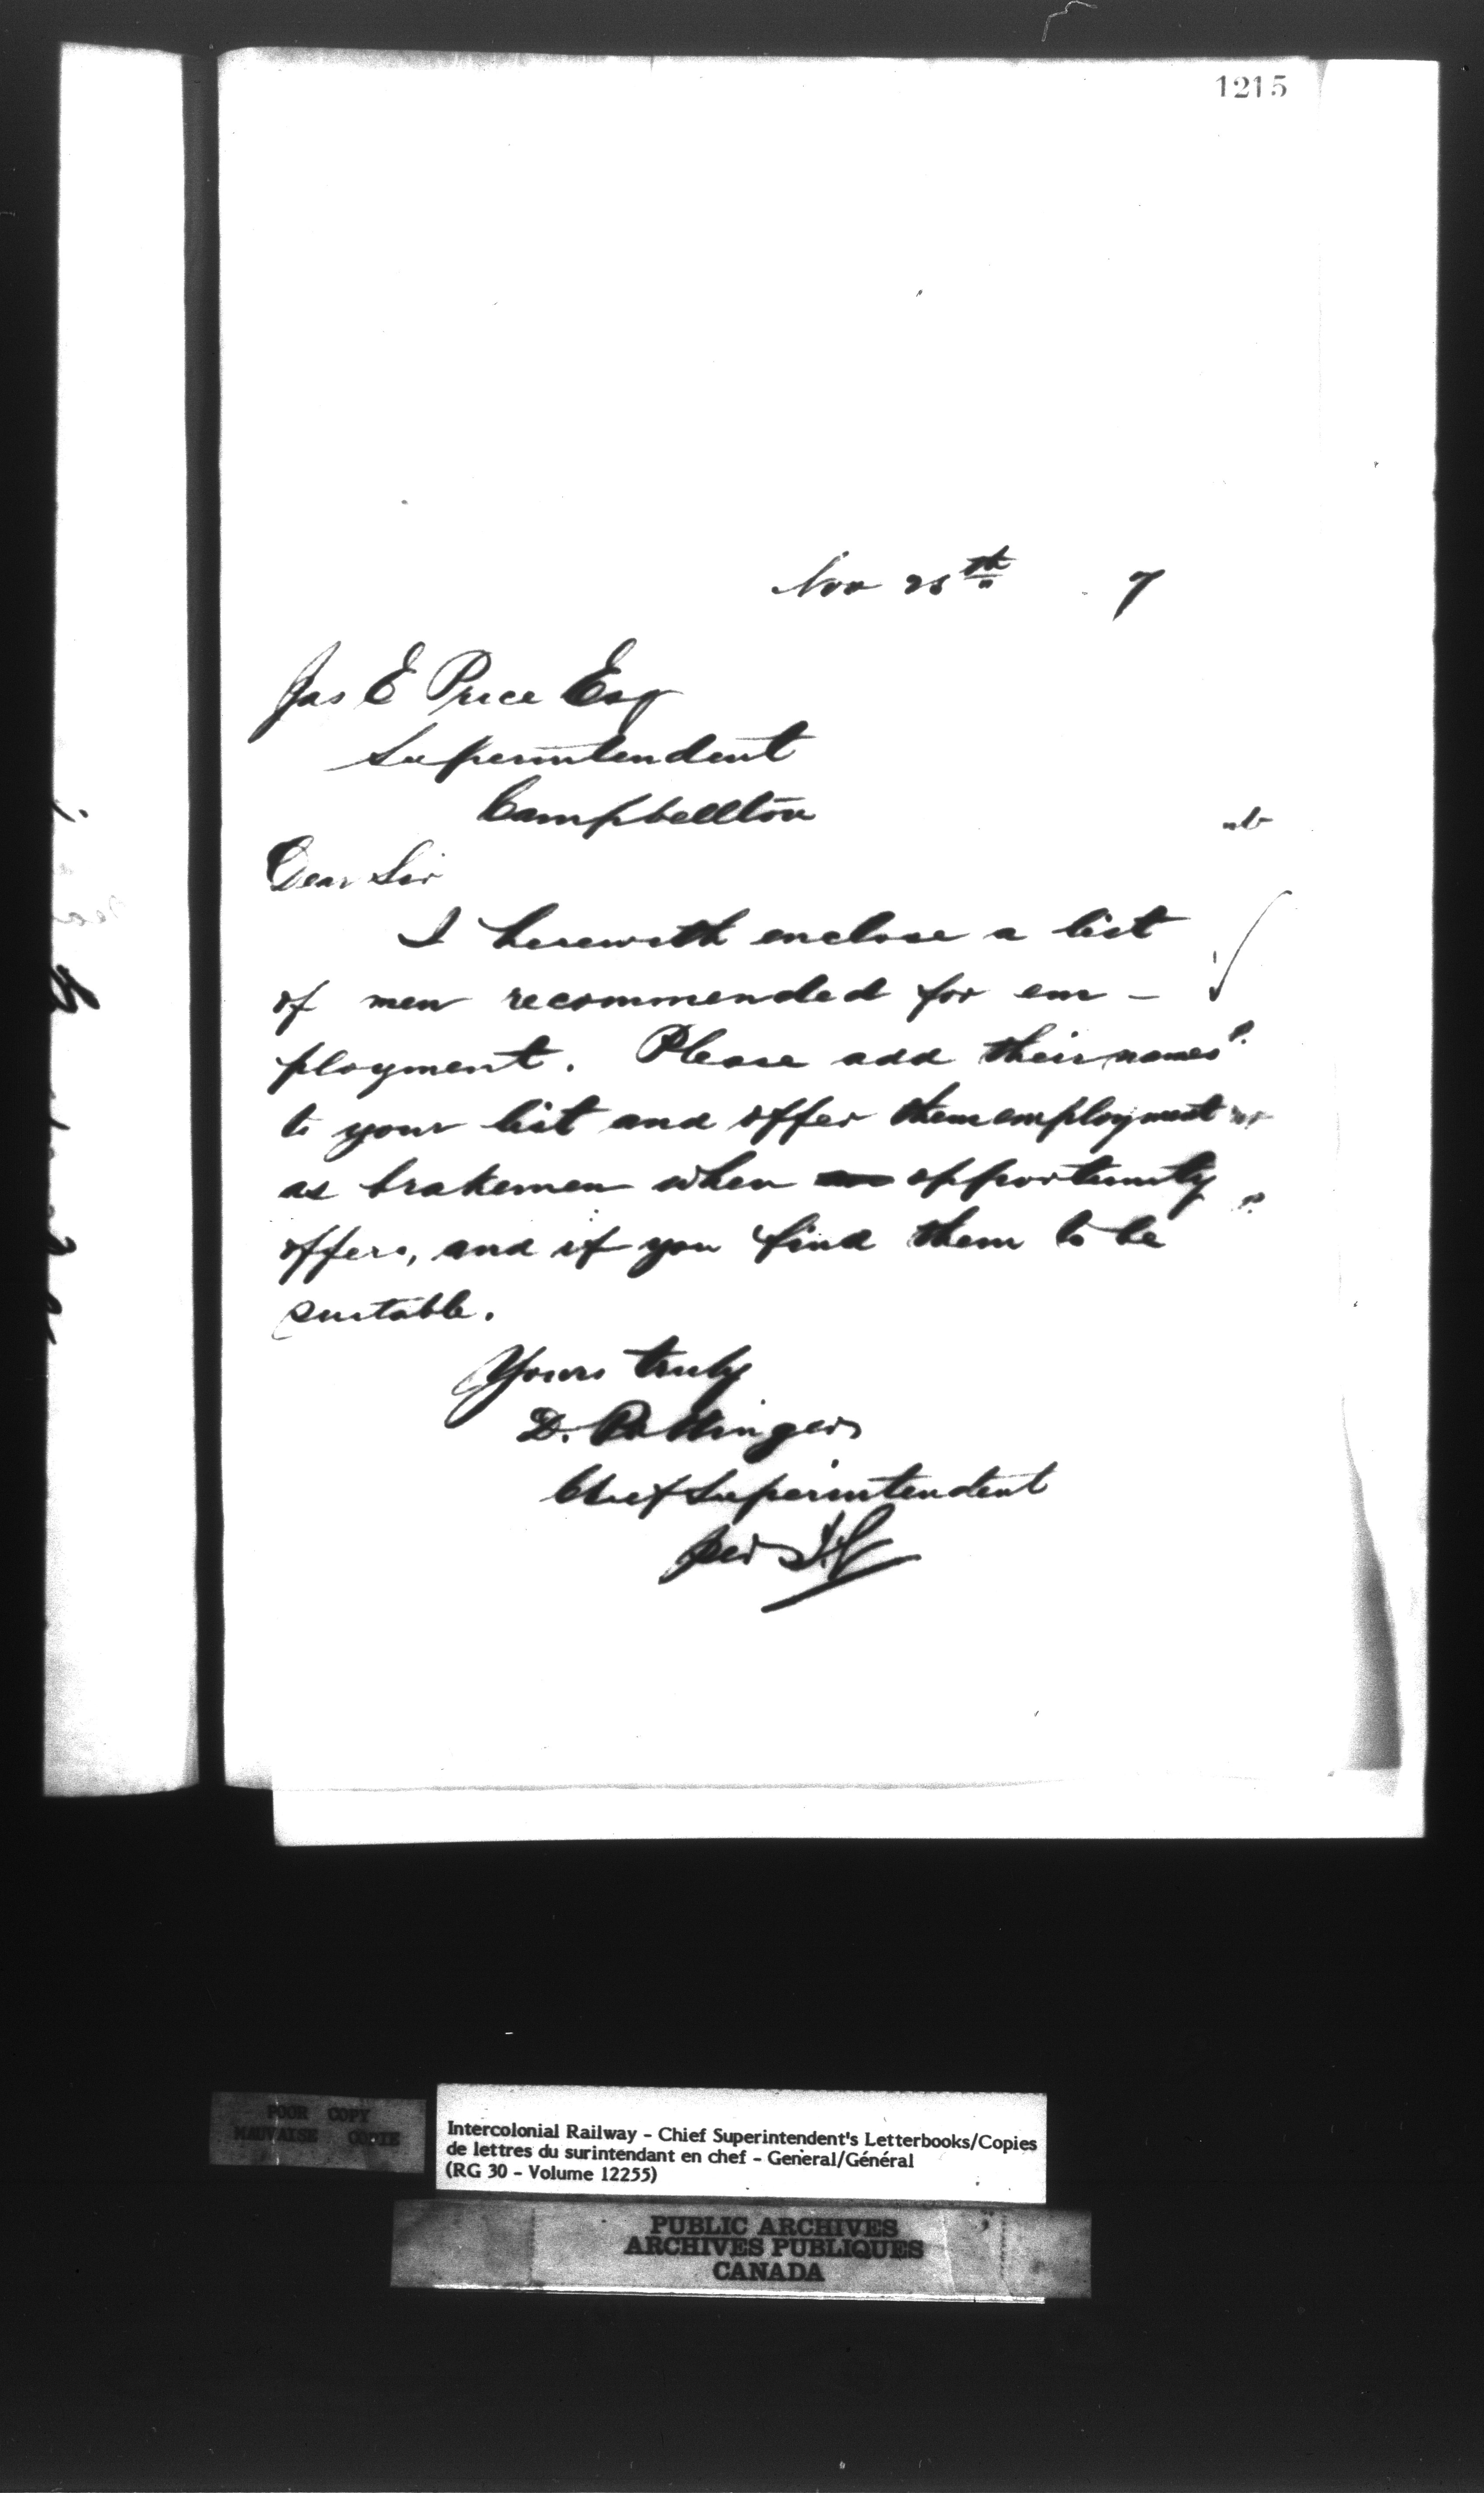 1215
Nov 25th 7
Jas E Price Esq
Superintendent
Campbellton
Dear Sir
I herewith enclose a list
of men recommended for em -
ployment. Please add their names
to your list and offer them employment
as brakemen when opportunity
offers, and if you find them to be
suitable.
Yours truly
D. Pottinger
Chief Superintendent
per
POOR COPY
MAUVAISE COPIE
Intercolonial Railway - Chief Superintendent's Letterbooks/Copies
de lettres du surintendant en chef - General/Général
(RG 30 - Volume 12255)
PUBLIC ARCHIVES
ARCHIVES PUBLIQUES
CANADA